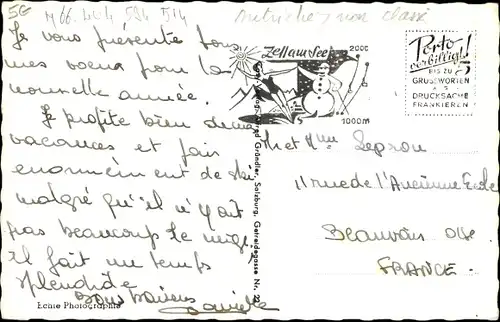 5G
M66.404 594 514
Autriche, non classé
Je vous présente tous
mes voeux pour la
nouvelle année.
Je profite bien de mes
vacances et fais
enormément de ski
malgré qu'il n'y ait
pas beaucoup de neige
il fait un temps
splendide
Danielle
Echte Photographie
Gründler, Salzburg, Getreidegasse Nr.
Zell am See
2000
1000m
Porto-
verbilligt!
BIS ZU 5
GRUSSWORTEN
ALS
DRUCKSACHE
FRANKIEREN!
Mr et Mme Seprou
11 rue de l'Ancienne Ecole
Beauvais Oise
FRANCE.